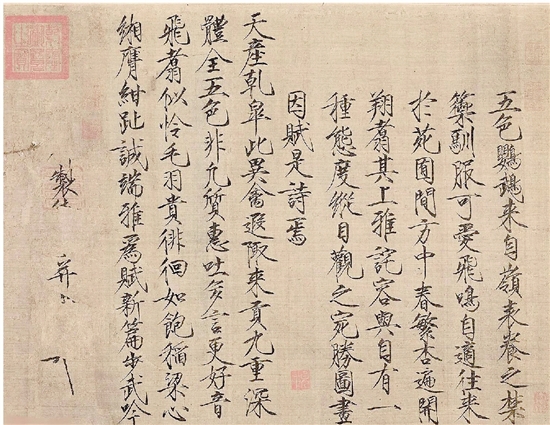 五色鸚鵡來自嶺表養之禁
籞馴服可愛飛鳴自適往來
於苑囿間方中春繁杏遍開
翔翥其上雅詫容與自有一
種態度縱目觀之宛勝圖畫
因賦是詩焉
天產乾皋此異禽遐陬來貢九重深
體全五色非凡質惠吐多言更好音
飛翥似怜毛羽貴徘徊如飽稻粱心
緗膺紺趾誠端雅爲賦新篇步武吟
製 并